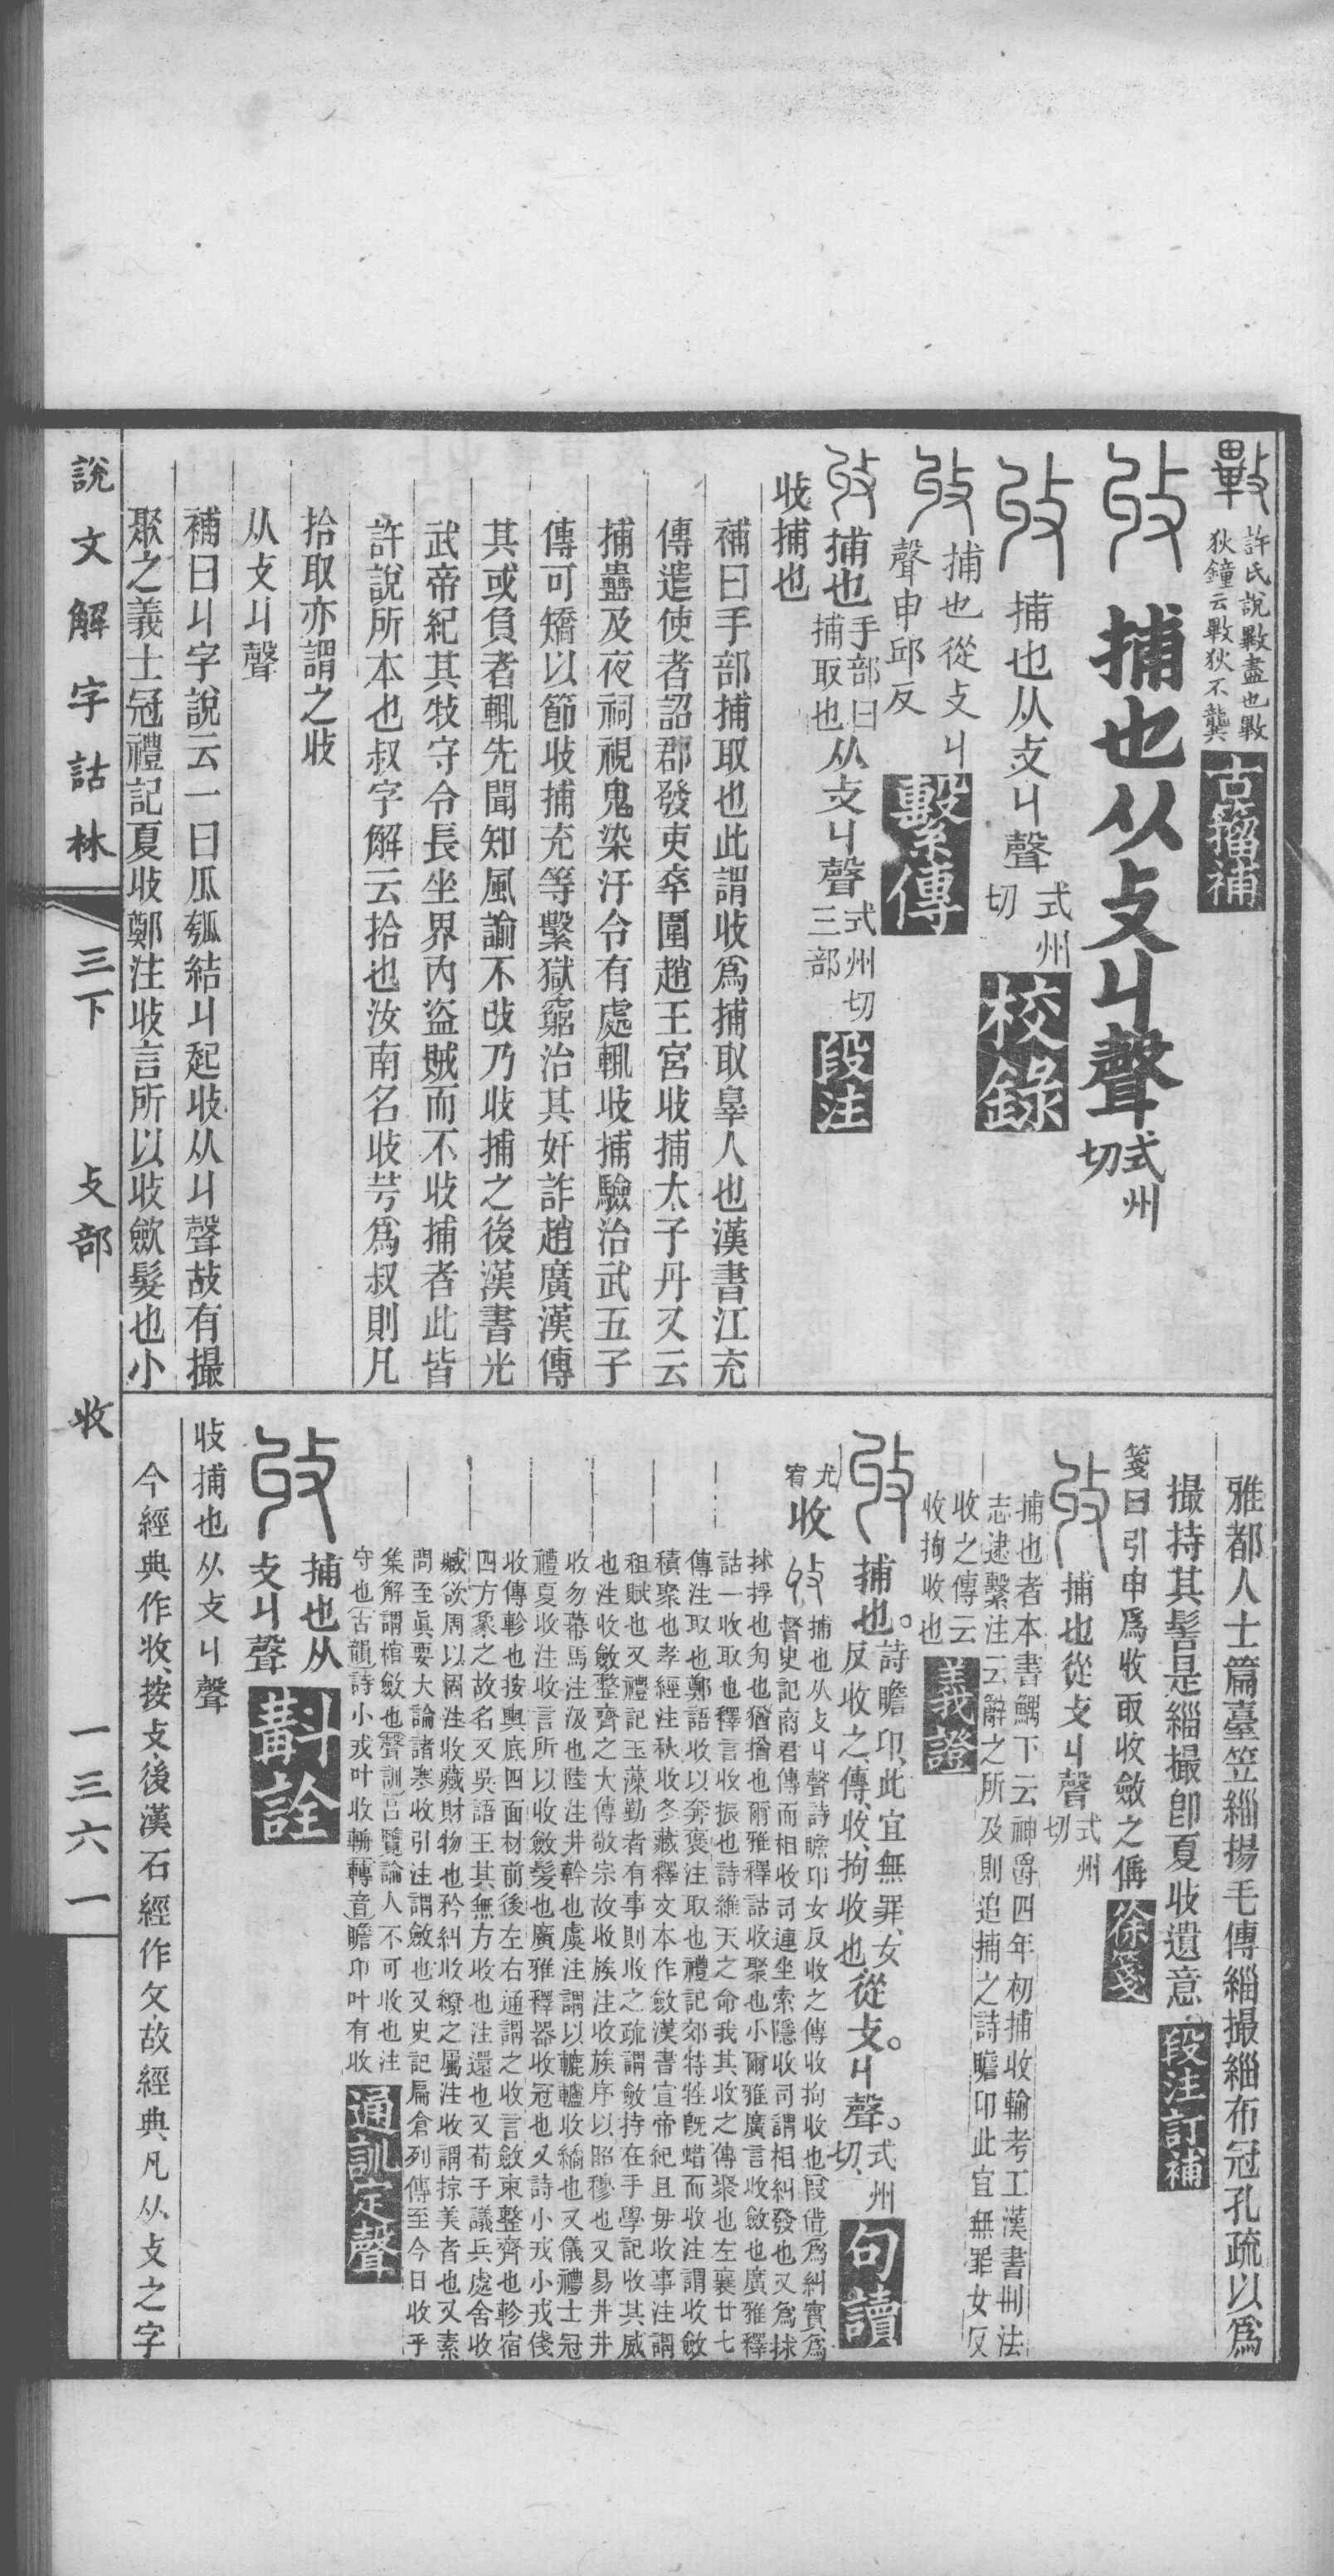 許氏說斁盡也斁
狄鐘云斁狄不龔
古籀補
捕也从攴丩聲式州切
捕也从攴丩聲式州切
校錄
捕也從攴丩
聲申邱反
繫傳
捕也手部曰捕取也从攴丩聲式州切三部
段注
收捕也
補曰手部捕取也此謂收爲捕取辠人也漢書江充
傳遣使者詔郡發吏卒圍趙王宮收捕太子丹又云
捕蠱及夜祠視鬼染汙令有處輒收捕驗治武五子
傳可矯以節收捕充等繫獄窮治其奸詐趙廣漢傳
其或負者輒先聞知風諭不改乃收捕之後漢書光
武帝紀其牧守令長坐界內盜賊而不收捕者此皆
許說所本也叔字解云拾也汝南名收芌爲叔則凡
拾取亦謂之收
从攴丩聲
補曰丩字說云一曰瓜瓠結丩起收从丩聲故有撮
聚之義士冠禮記夏收鄭注收言所以收斂髮也小
雅都人士篇臺笠緇撮毛傳緇撮緇布冠孔疏以爲
撮持其髻是緇撮卽夏收遺意
段注訂補
箋曰引申爲收取收斂之偁
徐箋
捕也從攴丩聲式州切
捕也者本書觸下云神爵四年初捕收輸考工漢書刑法
志逮繫注云辭之所及則追捕之詩瞻卬此宜無罪女反
收之傳云
收拘收也
義證
捕也。詩瞻卬、此宜無罪、女反收之、傳、收、拘收也從攴。丩聲。式州切、
句讀
尤宥
收
捕也从攴丩聲詩瞻卬女反收之傳收拘收也叚借爲糾實爲
督史記商君傳而相收司連坐索隱收司謂相糾發也又爲捄
捄捊也匈也猶揂也爾雅釋詁收聚也小爾雅廣言收斂也廣雅釋
詁一收取也釋言收振也詩維天之命我其收之傳聚也左襄廿七
傳注取也鄭語收以奔褒注取也禮記郊特牲旣蜡而收注謂收斂
積聚也孝經注秋收冬藏釋文本作斂漢書宣帝紀且毋收事注謂
租賦也又禮記玉藻勤者有事則收之疏謂斂持在手學記收其威
也注收斂整齊之大傳敬宗故收族注收族序以昭穆也又易井井
收勿幕馬注汲也陸注井幹也虞注謂以轆轤收繘也又儀禮士冠
禮夏收注收言所以收斂髮也廣雅釋器收冠也又詩小戎小戎俴
收傳軫也按輿底四面材前後左右通謂之收言斂束整齊也軫宿
四方象之故名又吳語王其無方收也注還也又荀子議兵處舍收
臧欲周以固注收藏財物也矜糾收繚之屬注收謂掠美者也又素
問至眞要大論諸寒收引注謂斂也又史記扁倉列傳至今日收乎
集解謂棺斂也聲訓呂覽論人不可收也注
守也古韻詩小戎叶收輈轉音瞻卬叶有收
通訓定聲
捕也从攴丩聲
斠詮
收捕也从攴丩聲
今經典作收、按攴、後漢石經作攵故經典凡从攴之字
說文解字詁林
三下
攴部
收
一三六一